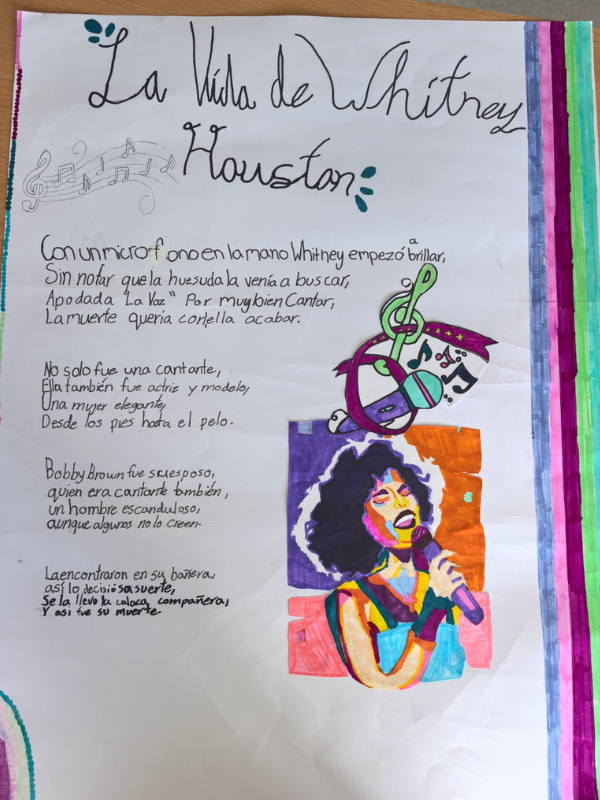 La Vida de Whitney
Houston
Con un microfono en la mano Whitney empezó a brillar,
Sin notar que la huesuda la venía a buscar,
Apodada "La Voz" Por muy bien Cantar,
La muerte quería con ella acabar.
No solo fue una cantante,
Ella también fue actriz y modelo,
Una mujer elegante,
Desde los pies hasta el pelo.
Bobby Brown fue su esposo,
quien era cantante también,
un hombre escanduloso,
aunque algunos no lo creen.
La encontraron en su bañera,
así lo decisió sa suerte,
Se la llevo la calaca compañera,
Y así fue su muerte.